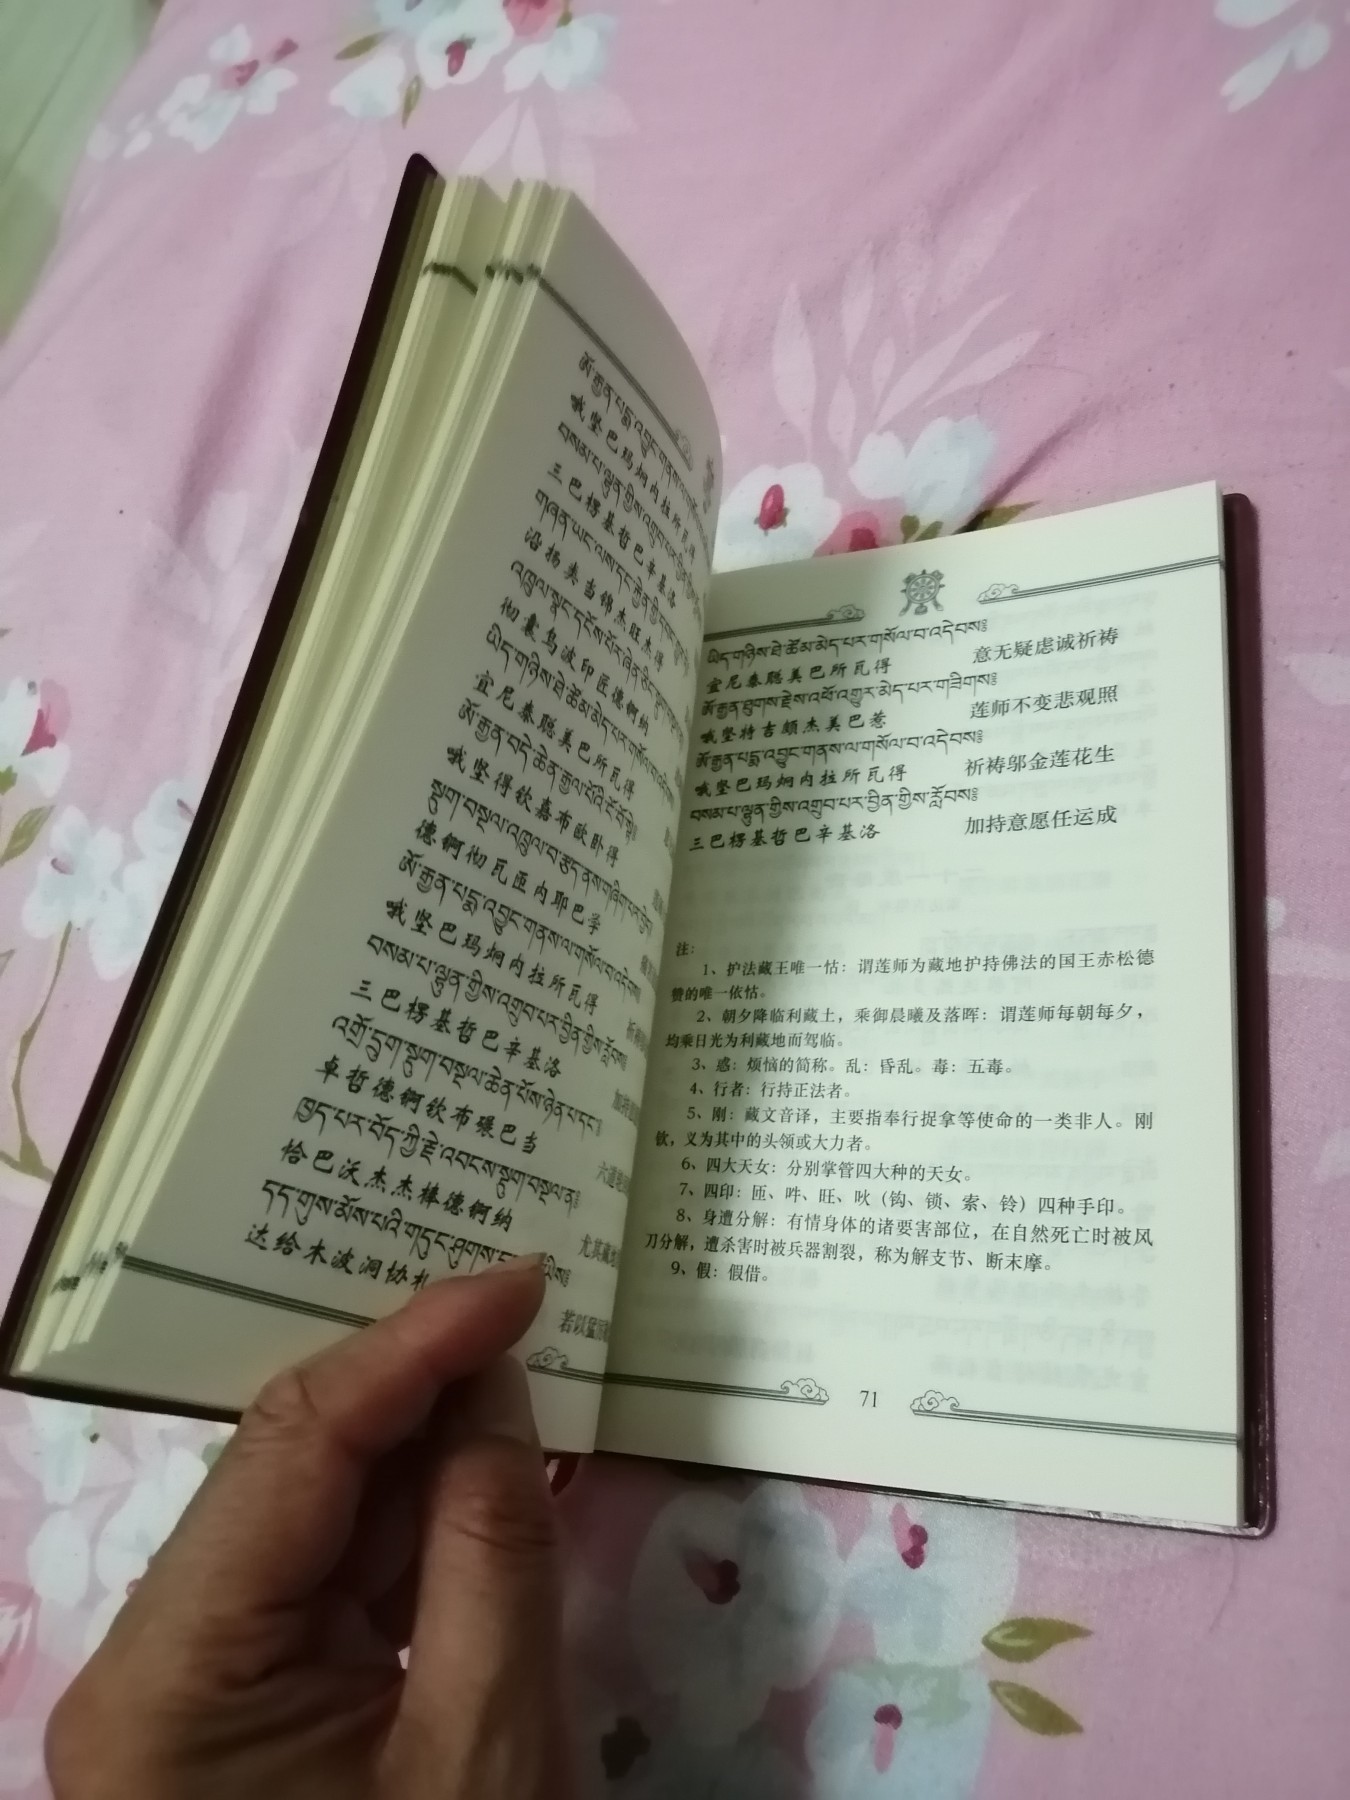 ཨོ་རྒྱན་པདྨ་འབྱུང་གནས་ལ་གསོལ་
哦坚巴玛炯内拉所瓦得
བསམ་པ་ལྷུན་གྱིས་འགྲུབ་པར་བྱིན་གྱིས་
三巴楞基哲巴辛基洛
གཞན་ཡང་ལས་དང་རྐྱེན་གྱིས་
沿扬类当锦杰旺杰得
འཁྲུལ་སྣང་དངོས་པོར་ཞེན་ཅིང་སྡུག་
彻囊乌波印匠德锕纳
ཡིད་གཉིས་ཐེ་ཚོམ་མེད་པར་གསོལ་བ་འདེབས༔
宜尼泰聪美巴所瓦得
ཨོ་རྒྱན་བདེ་ཆེན་རྒྱལ་པོའི་ངོ་བོ་སྟེ༔
哦坚得钦嘉布欧卧得
སྡུག་བསྔལ་འཁྲུལ་བ་རྩད་ནས་གཞིག་པར་
德锕彻瓦匝内耶巴学
ཨོ་རྒྱན་པདྨ་འབྱུང་གནས་ལ་གསོལ་བ་འདེབས༔
哦坚巴玛炯内拉所瓦得
བསམ་པ་ལྷུན་གྱིས་འགྲུབ་པར་བྱིན་གྱིས་རློབས༔
三巴楞基哲巴辛基洛
འགྲོ་དྲུག་སྡུག་བསྔལ་ཆེན་པོས་ཉེན་པ་དང༔
卓哲德锕钦布碾巴当
ཁྱད་པར་བོད་ཀྱི་རྗེ་འབངས་སྡུག་བསྔལ་ན༔
恰巴沃杰杰棒德锕纳
དད་གུས་མོས་པའི་གདུང་ཤུགས་
达给木波洞协札
加持
六道
尤其藏地
若以猛厉
ཡིད་གཉིས་ཐེ་ཚོམ་མེད་པར་གསོལ་བ་འདེབས༔
宜尼泰聪美巴所瓦得 意无疑虑诚祈祷
ཨོ་རྒྱན་ཐུགས་རྗེས་འཕོ་འགྱུར་མེད་པར་གཟིགས༔
哦坚特吉颇杰美巴惹 莲师不变悲观照
ཨོ་རྒྱན་པདྨ་འབྱུང་གནས་ལ་གསོལ་བ་འདེབས༔
哦坚巴玛炯内拉所瓦得 祈祷邬金莲花生
བསམ་པ་ལྷུན་གྱིས་འགྲུབ་པར་བྱིན་གྱིས་རློབས༔
三巴楞基哲巴辛基洛 加持意愿任运成
注：
1、护法藏王唯一怙：谓莲师为藏地护持佛法的国王赤松德
赞的唯一依怙。
2、朝夕降临利藏土，乘御晨曦及落晖：谓莲师每朝每夕，
均乘日光为利藏地而驾临。
3、惑：烦恼的简称。乱：昏乱。毒：五毒。
4、行者：行持正法者。
5、刚：藏文音译，主要指奉行捉拿等使命的一类非人。刚
钦，义为其中的头领或大力者。
6、四大天女：分别掌管四大种的天女。
7、四印：匝、吽、旺、吙（钩、锁、索、铃）四种手印。
8、身遭分解：有情身体的诸要害部位，在自然死亡时被风
刀分解，遭杀害时被兵器割裂，称为解支节、断末摩。
9、假：假借。
71